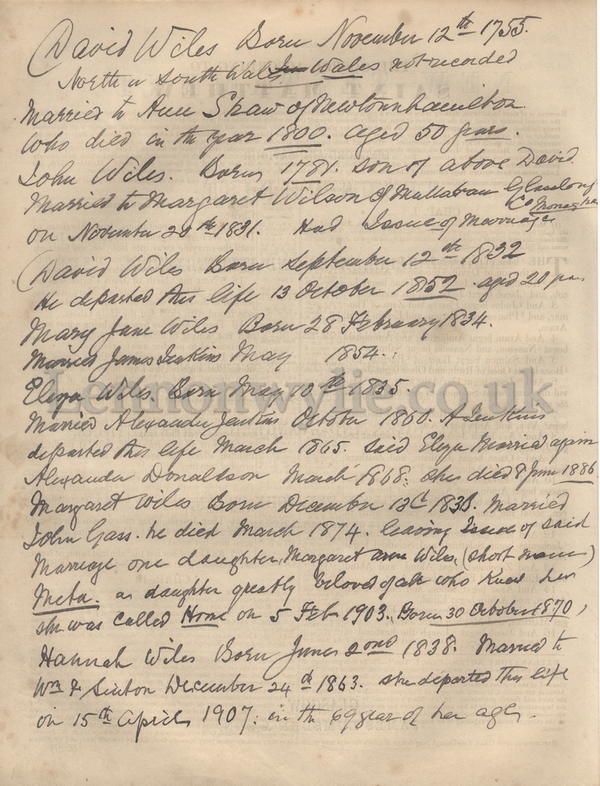 David Wiles Born November 12th 1755.
North or South Wales Wales not recorded
Married to Ann Shaw of Newtownhamilton
who died in the year 1800. aged 50 years.
John Wiles. Born 1781. son of above David
Married to Margaret Wilson of Glaslough
Co Monaghan
on November 29th 1831. Had Issue of Marriage
David Wiles Born September 12th 1832
He departed this life 13 October 1852. aged 20 years
Mary Jane Wiles Born 28 February 1834.
Married James Jenkins May 1854.
Eliza Wiles. Born May 10th 1835.
Married Alexander Jenkins October 1860. A Jenkins
departed this life March 1865. Said Eliza Married again
Alexander Donaldson March 1868. she died 8 June 1886
Margaret Wiles Born December 1836. Married
John Gass. he died March 1874. leaving Issue of said
Marriage one daughter, Margaret Wiles, (short name)
Meta. a daughter greatly beloved of all who knew her
she was called Home on 5 Feb 1903. Born 30 October 1870,
Hannah Wiles Born June 2nd 1838. Married to
Wm Sinton December 24th 1863. she departed this life
on 15th April 1907: in the 69 year of her age.
Lennonwylie.co.uk